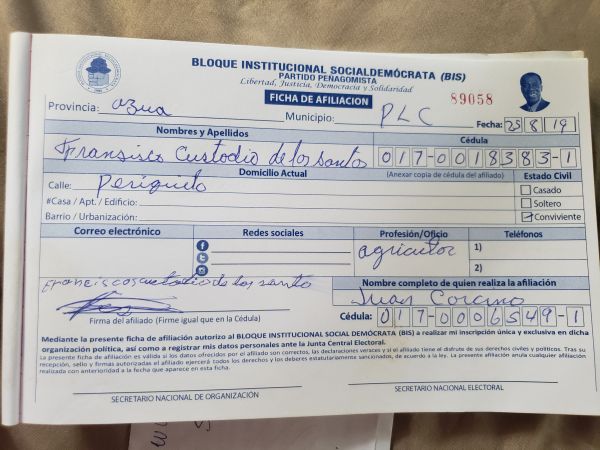 BLOQUE INSTITUCIONAL SOCIALDEMÓCRATA (BIS)
PARTIDO PEÑAGOMISTA
Libertad, Justicia, Democracia y Solidaridad
FICHA DE AFILIACION
89058
Provincia: azua Municipio: PLC Fecha: 25 8 19
Nombres y Apellidos Cédula
Fransisco Custodio de los santos 017-0018383-1
Domicilio Actual (Anexar copia de cédula del afiliado) Estado Civil
Calle: Periquito Casado
#Casa / Apt. / Edificio: Soltero
Barrio / Urbanización: Conviviente
Correo electrónico Redes sociales Profesión/Oficio Teléfonos
agricultor 1)
2)
Franciscocustodio de los santo Nombre completo de quien realiza la afiliación
Juan Corcino
Firma del afiliado (Firme igual que en la Cédula) Cédula: 017-0006549-1
Mediante la presente ficha de afiliación autorizo al BLOQUE INSTITUCIONAL SOCIAL DEMÓCRATA (BIS) a realizar mi inscripción única y exclusiva en dicha
organización política, así como a registrar mis datos personales ante la Junta Central Electoral.
La presente ficha de afiliación es válida si los datos ofrecidos por el afiliado son correctos, las declaraciones veraces y si el afiliado tiene el disfrute de sus derechos civiles y políticos. Tras su
recepción, sello y firmas autorizadas el afiliado ejercerá todos los derechos y los deberes estatutariamente sancionados, de acuerdo a la ley. La presente afiliación anula cualquier afiliación
realizada con anterioridad a la fecha que aparece en esta ficha.
SECRETARIO NACIONAL DE ORGANIZACIÓN SECRETARIO NACIONAL ELECTORAL